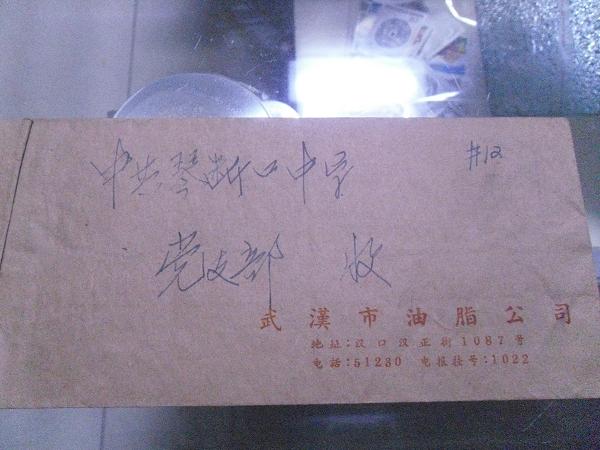 中共琴断口中学
#12
党支部 收
武漢市油脂公司
地址:汉口汉正街1087号
电话:51230 电报挂号:1022